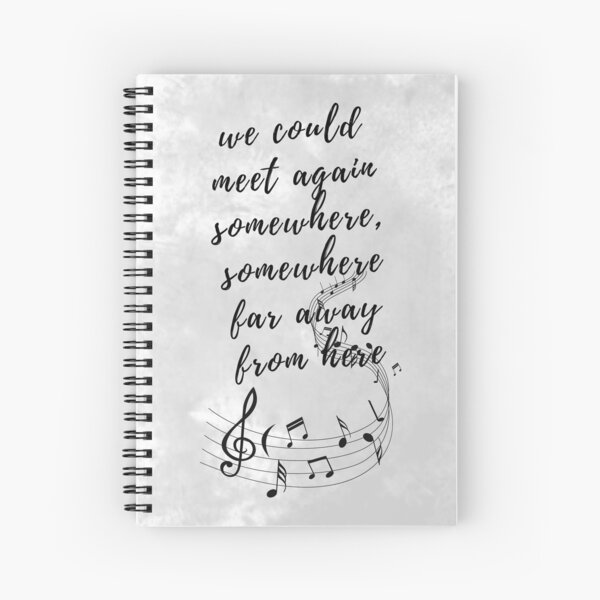 we could
meet again
somewhere,
somewhere
far away
from here